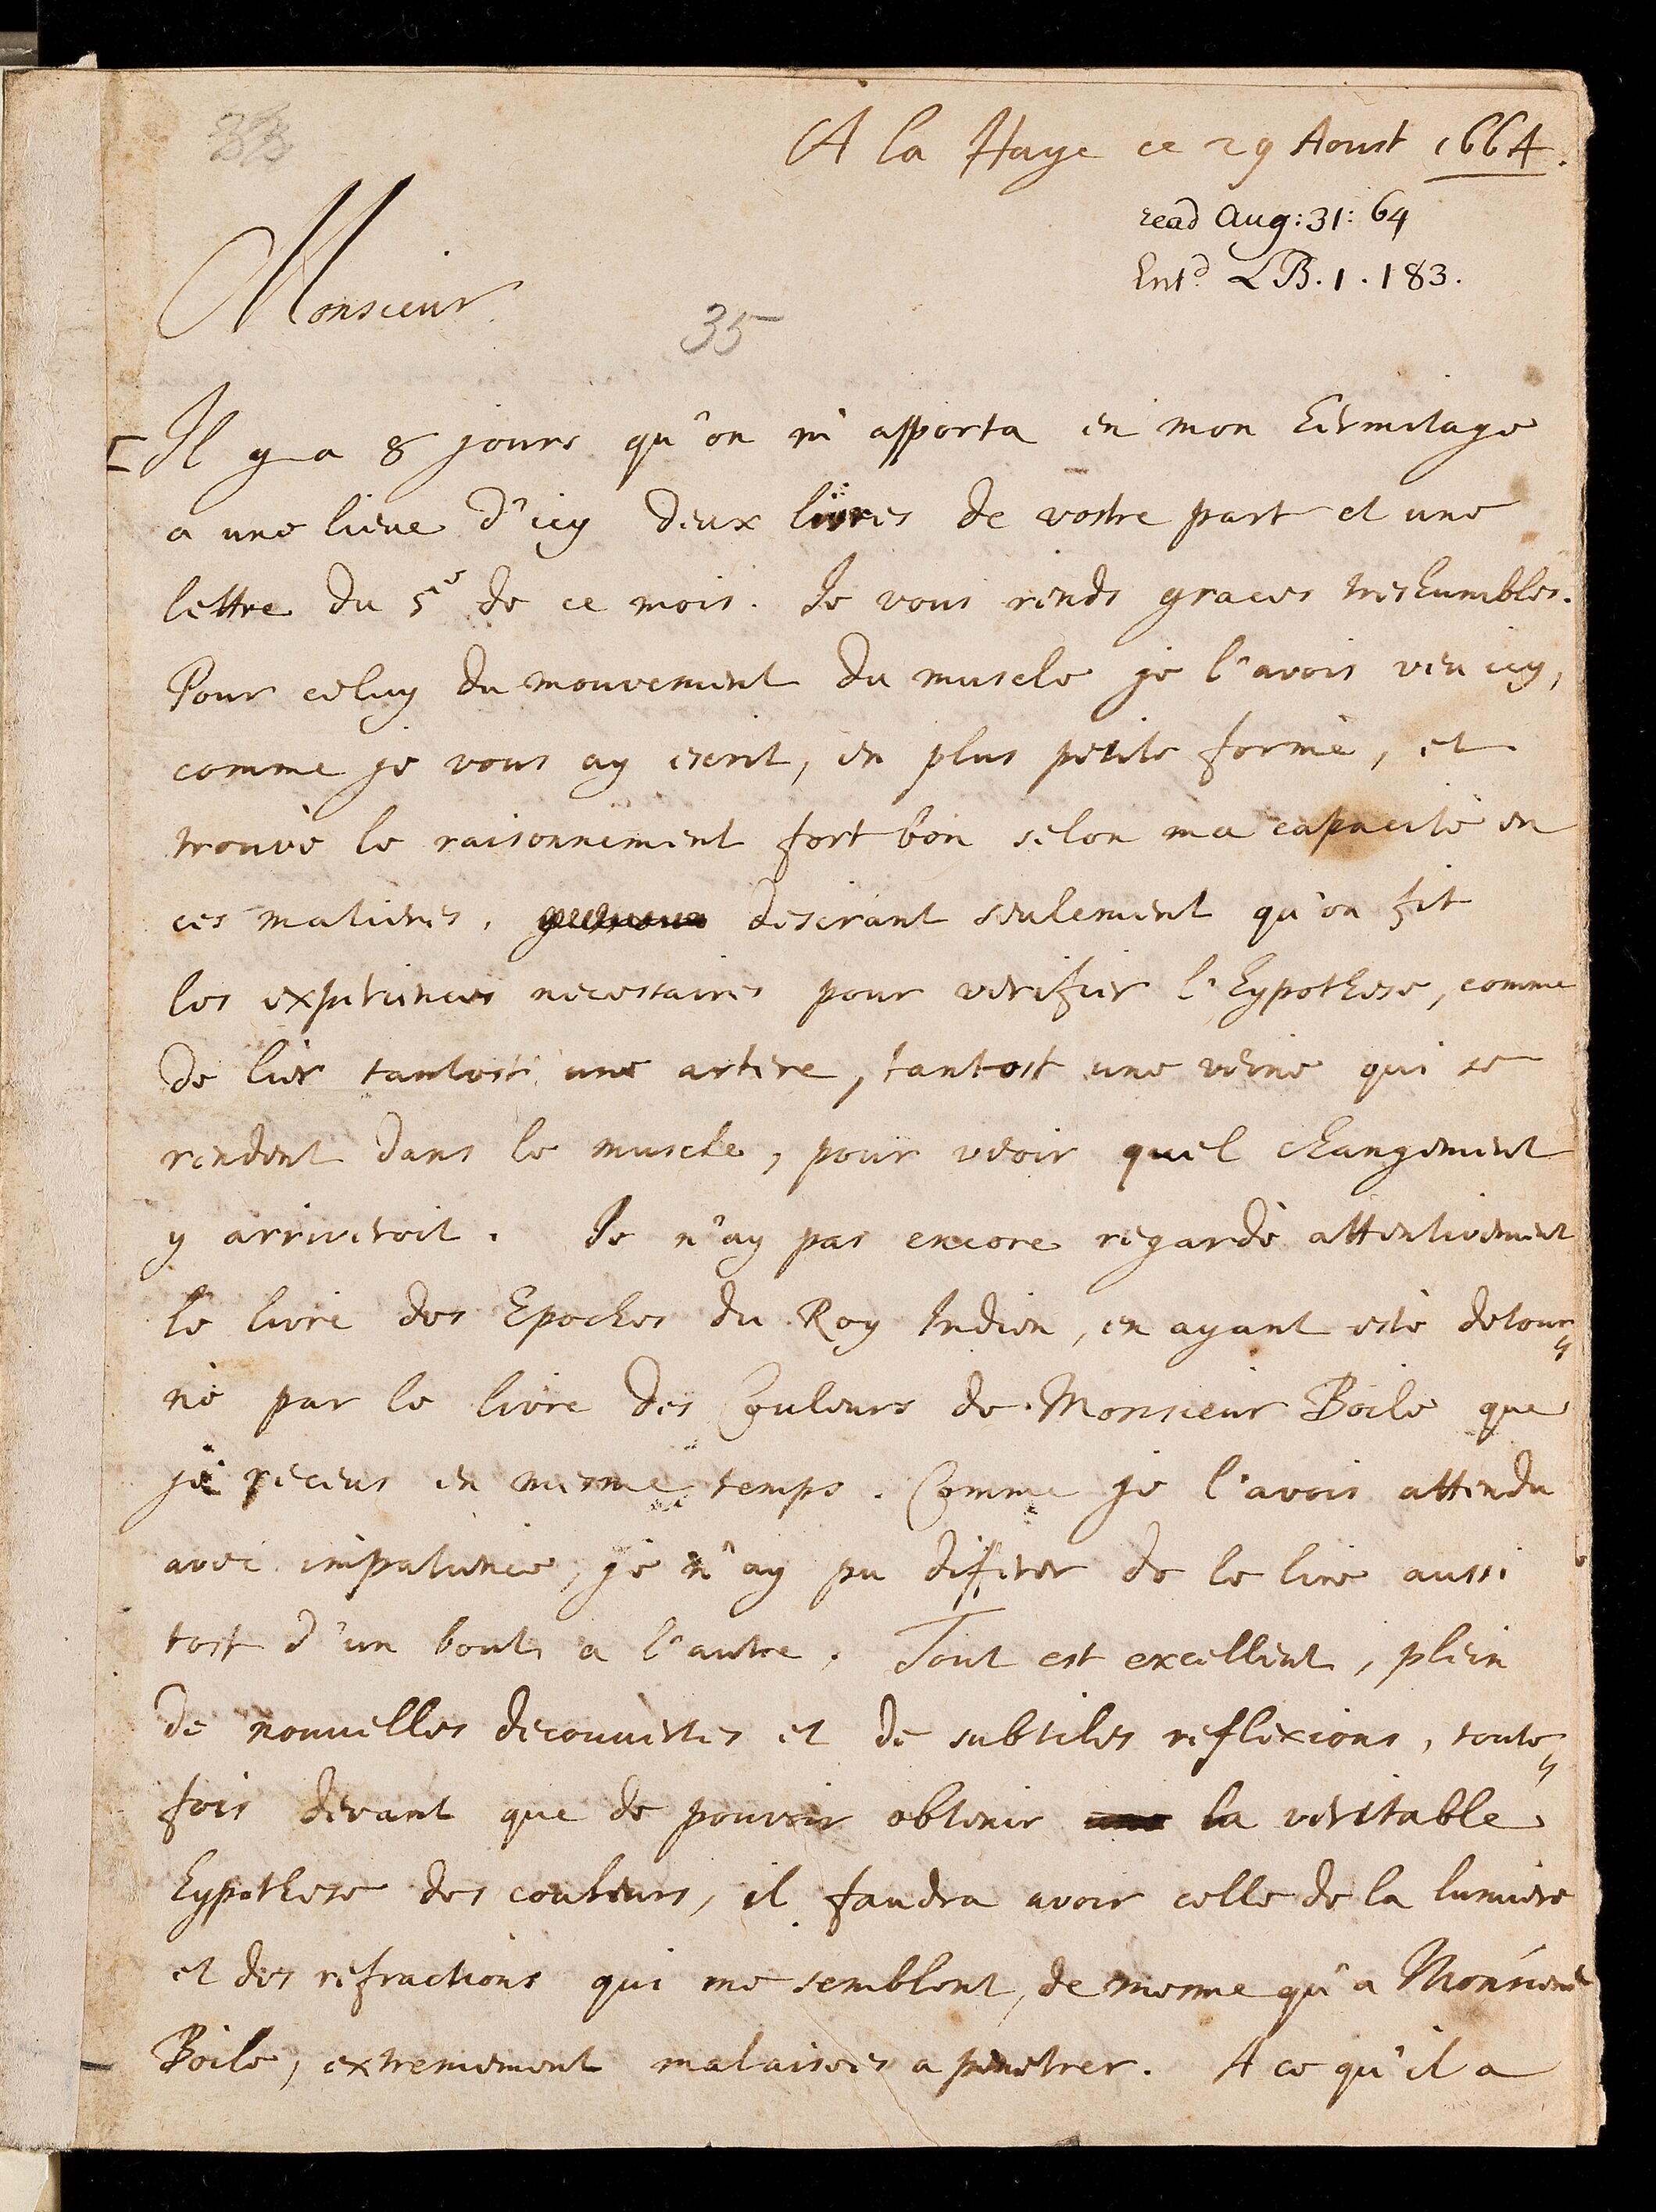 A la Haye ce 29 Aoust 1664.
read Aug: 31: 64
Ent.d LB. 1. 183.
Monsieur
35
Il y a 8 jours qu'on m'apporta en mon hermitage
a une lieue d'icy deux livres de vostre part et une
lettre du 5e de ce mois. Je vous rends graces treshumbles.
Pour celuy du mouvement du muscle je l'avois veu icy,
comme je vous ay escrit, en plus petite forme, et
trouvè le raisonnement fort bon selon ma capacitè en
ces matieres, desirant seulement qu'on fit
les experiences necessaires pour verifier l'hypothese, comme
de lier tantost une artere, tantost une veine qui se
rendent dans le muscle, pour veoir quel changement
y arriveroit. Je n'ay pas encore regardè attentivement
le livre des Epoches du Roy Indien, en ayant estè detour„
nè par le livre des Couleurs de Monsieur Boile que
je receus en mesme temps. Comme je l'avois attendu
avec impatience, je n'ay pu diferer de le lire aussi
tost d'un bout a l'autre. Tout est excellent, plein
de nouvelles decouvertes et de subtiles reflexions, toute„
fois devant que de pouvoir obtenir la veritable
hypothese des couleurs, il faudra avoir celle de la lumiere
et des refractions qui me semblent, de mesme qu'a Monsieur
Boile, extremement malaisees a penetrer. A ce qu'il a